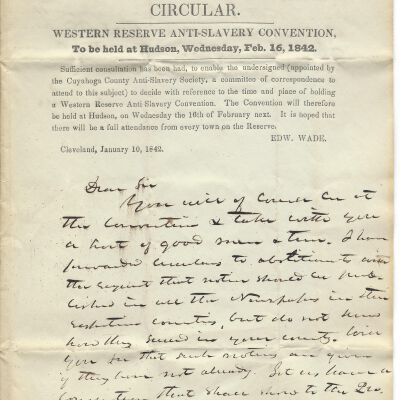 CIRCULAR.
WESTERN RESERVE ANTI-SLAVERY CONVENTION,
To be held at Hudson, Wednesday, Feb. 16, 1842.
Sufficient consultation has been had, to enable the undersigned (appointed by
the Cuyahoga County Anti-Slavery Society, a committee of correspondence to
attend to this subject) to decide with reference to the time and place of holding
a Western Reserve Anti-Slavery Convention. The Convention will therefore
be held at Hudson, on Wednesday the 16th of February next. It is hoped that
there will be a full attendance from every town on the Reserve.
EDW. WADE.
Cleveland, January 10, 1842.
Dear Sir
You will of course be at
the Convention & take with you
a host of good men & true. I have
forwarded circulars to abolitionists with
the request that notice should be pub-
lished in all the Newspapers in the
Eastern counties, but do not know
how they succeed in your county. Will
you see that such notices are given
if they have not already. Let us have a
Convention that shall show to the